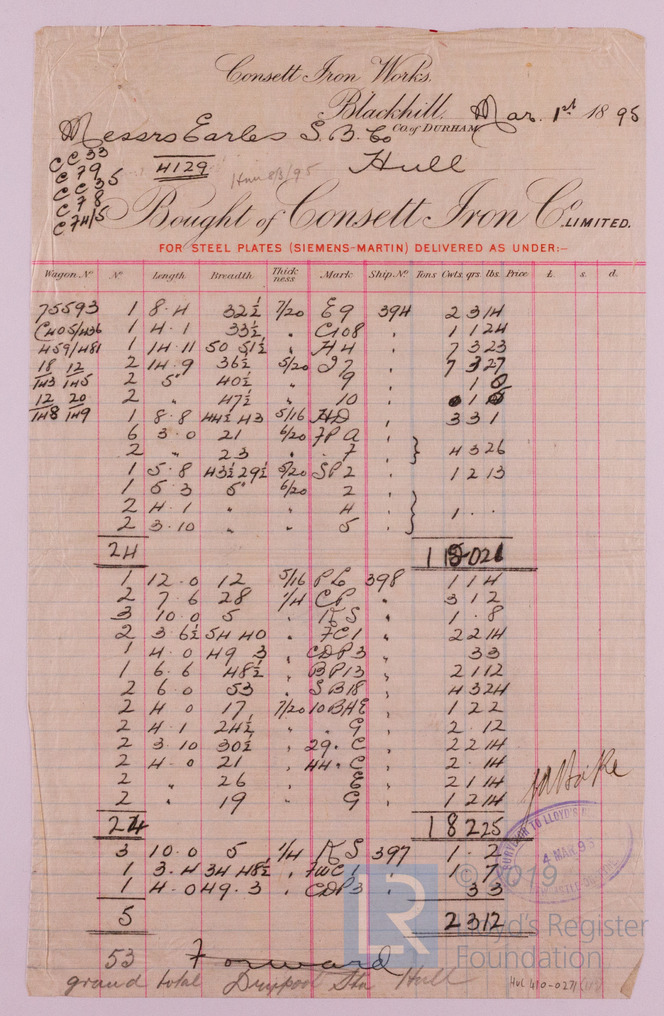 Consett Iron Works.
Blackhill, Mar. 1st 1895
Co. of DURHAM
Messrs Earles S. B. Co
Hull
CC 33
C 79
CC 35
C 78
C 74/5
4129
Bought of Consett Iron Co. LIMITED.
FOR STEEL PLATES (SIEMENS-MARTIN) DELIVERED AS UNDER:-
Wagon No No Length Breadth Thickness Mark Ship. No Tons Cwts. qrs. lbs. Price £ s. d.
75593 1 8·4 32½ 7/20 E9 394 2 3 14
C405/436 1 4·1 33½ " C108 " 1 1 24
459/481 1 14·11 50 51½ " H4 " 7 3 23
18 12 2 14·9 36½ 5/20 27 " 7 3 27
143 145 2 5" 40½ " 9 " 1 0
12 20 2 " 47½ " 10 " 1 0
148 149 1 8·8 44½ 43 5/16 HD " 3 3 1
6 3·0 21 6/20 FPA "
2 " 23 " " 7 " 4 3 26
1 5·8 43½ 29½ 5/20 SP2 " 1 2 13
1 5 3 5" 6/20 2 "
2 4·1 " " 4 " 1 · ·
2 3·10 " " 5 "
24 1 15 0 21
1 12·0 12 5/16 PL 398 1 1 4
2 7·6 28 1/4 CP " 3 1 2
3 10·0 5 " KS " 1 · 8
2 3·6½ 54 40 " FC1 " 2 2 14
1 4·0 49 3 " CDP3 " 3 3
1 6·6 48½ " BP13 " 2 1 12
2 6·0 53 " SB18 " 4 3 24
2 4·0 17 7/20 10BHE " 1 2 2
2 4·1 24½ " " G " 2 · 12
2 3·10 30½ " 29 · C " 2 2 14
2 4·0 21 " 44 · C " 2 · 14
2 " 26 " E " 2 1 14
2 " 19 " G " 1 2 14
24 1 8 2 25
SURVEYOR TO LLOYD'S
4 MAR. 95
3 10·0 5 1/4 KS 397 1 · 2
1 3·4 34 48½ " FWC1 " 1 · 7
1 4·0 49·3 " CDP3 " 3 3
5 2 3 12
© 2019
LR
Lloyd's Register
Foundation
53 Forward
grand total Drypool Sta Hull
HUL 410-0271